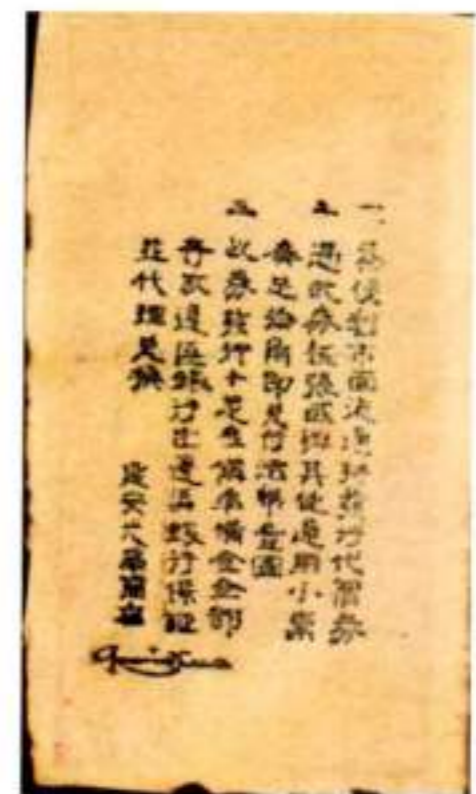 一、為便利市面流通發行代價券
二 憑此券張或其他通用小票
足拾角即兌付法幣壹圓
三 此券發行十足準備金全部
存邊區銀行由邊區銀行保証
並代理兌換
延安光華商店